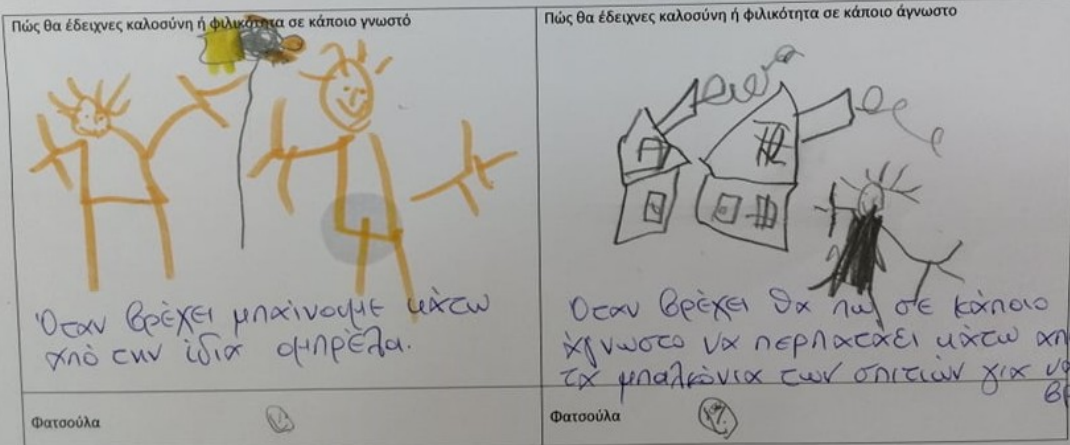 Πώς θα έδειχνες καλοσύνη ή φιλικότητα σε κάποιο γνωστό
Όταν βρέχει μπαίνουμε κάτω
από την ίδια ομπρέλα.
Φατσούλα
Πώς θα έδειχνες καλοσύνη ή φιλικότητα σε κάποιο άγνωστο
Όταν βρέχει θα πω σε κάποιο
άγνωστο να περπατάει κάτω απ
τα μπαλκόνια των σπιτιών για
Φατσούλα